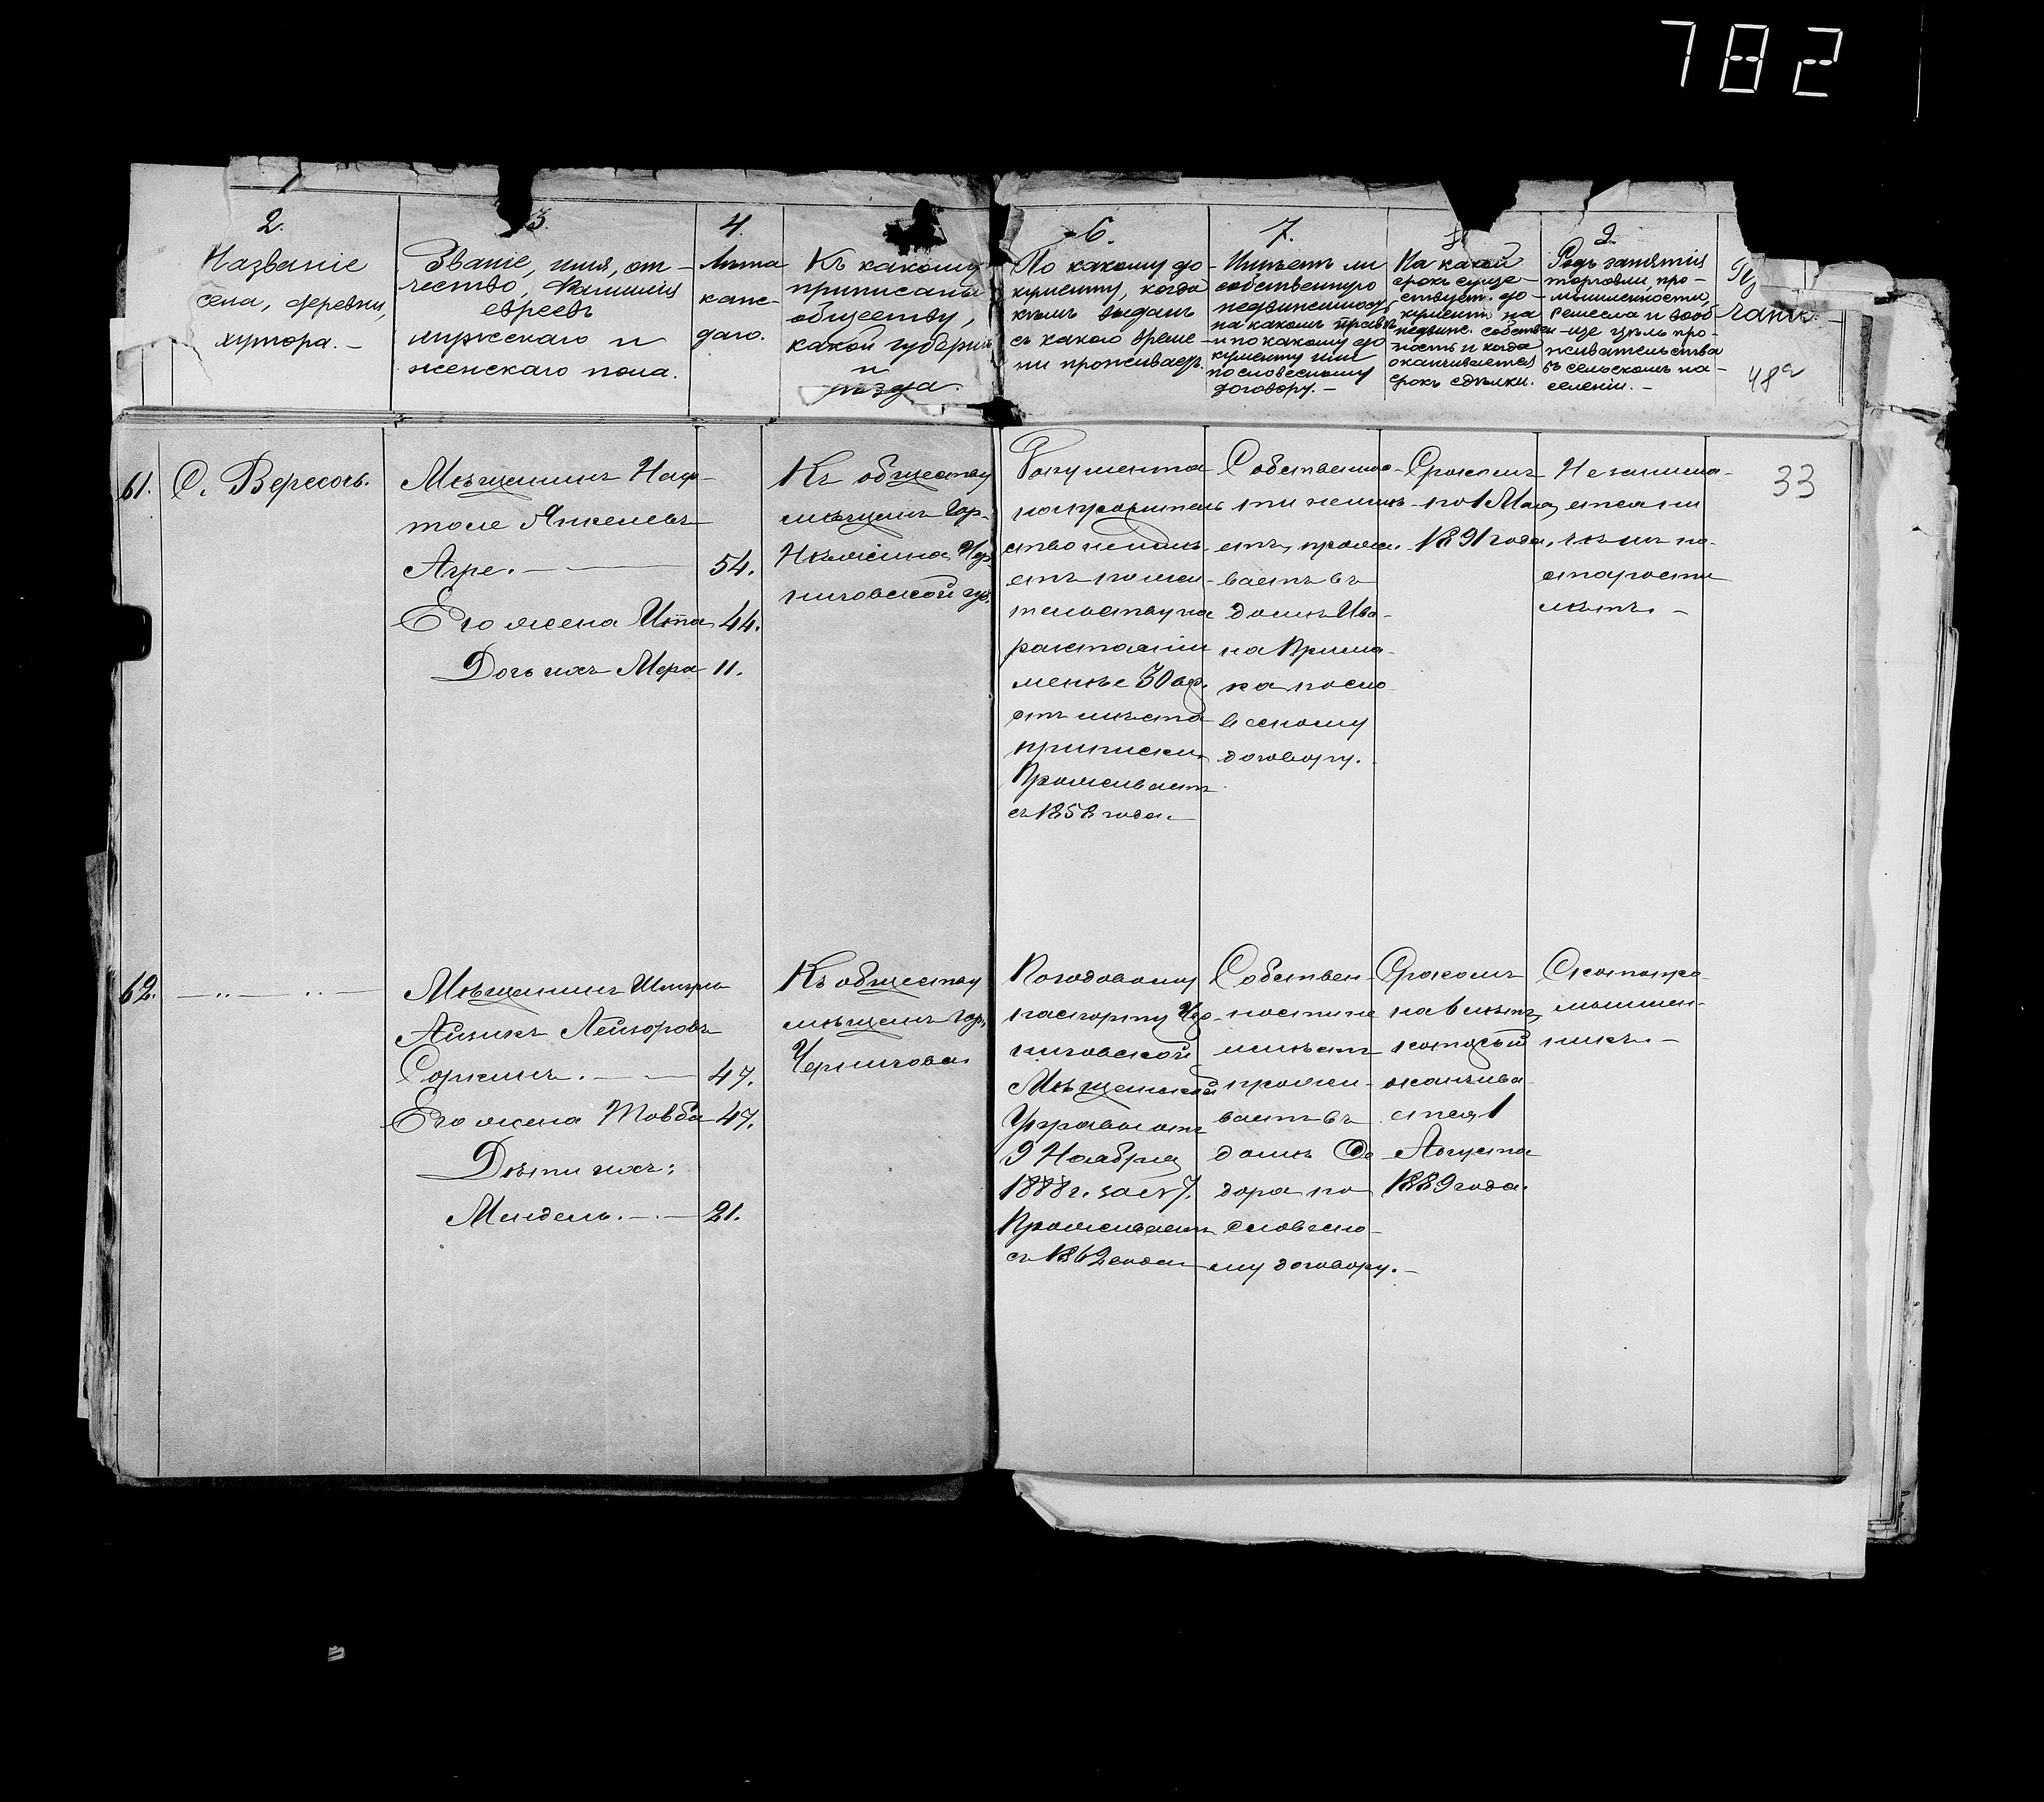 782
2.
Названіе
села, деревни,
хутора. —
3.
Званіе, имя, от-
чество, Фамилія
евреевъ
мужскаго и
женскаго пола.
4.
Лѣта
каж-
даго.
Къ какому
приписаны
обществу,
какой губерніи
и
уѣзда.
6.
По какому до-
кументу, когда
кѣмъ выданъ
съ какого време-
ни проживаетъ.
7.
Имѣетъ ли
собственную
недвижимость
на какомъ правѣ
и по какому до-
кументу или
по словесному
договору. —
На какой
срокъ суще-
ствуетъ до-
кументъ на
недвиж. собствен-
ность и когда
оканчивается
срокъ сдѣлки.
9.
Родъ занятія
торговли, про-
мышленности,
ремесла и вооб-
ще цѣль про-
живательства
въ сельскомъ на-
селеніи. —
48а
33
61.
С. Вересочь.
Мѣщанинъ Наф-
толе Янкелевъ
Агре. — 54.
Его жена Ита 44.
Дочь ихъ Мера 11.
Къ обществу
мѣщанъ гор.
Нѣжина Чер-
ниговской губ.
Документа
на
жи-
тельство на
разстояніи
менѣе 30 вер.
отъ мѣста
приписки.
Проживаетъ
съ 1858 года. —
Собственнос-
ти не имѣ-
етъ, прожи-
ваетъ въ
домѣ Ива-
на Прима-
ка по сло-
весному
договору.
Срокомъ
по 1 Мая
1891 года.
Не занима-
ется ни
чѣмъ по
старости
лѣтъ. —
62.
— „ — „ —
Мѣщанинъ Шмуль
Айзикъ Лейзоровъ
Соркинъ. — 47.
Его жена Товба 47.
Дѣти ихъ:
Мендель. — 21.
Къ обществу
мѣщанъ гор.
Чернигова
По годовому
паспорту Чер-
ниговской
Мѣщанской
Управы отъ
9 Ноября
1888 г. за № 7.
Проживаетъ
съ 1862 года
Собствен-
ности не
имѣетъ
прожи-
ваетъ въ
домѣ Фе-
дора по
словесно-
му договору. —
Срокомъ
на 6 лѣтъ,
который
оканчива-
ется 1
Августа
1889 года.
Скотопро-
мышлен-
никъ. —